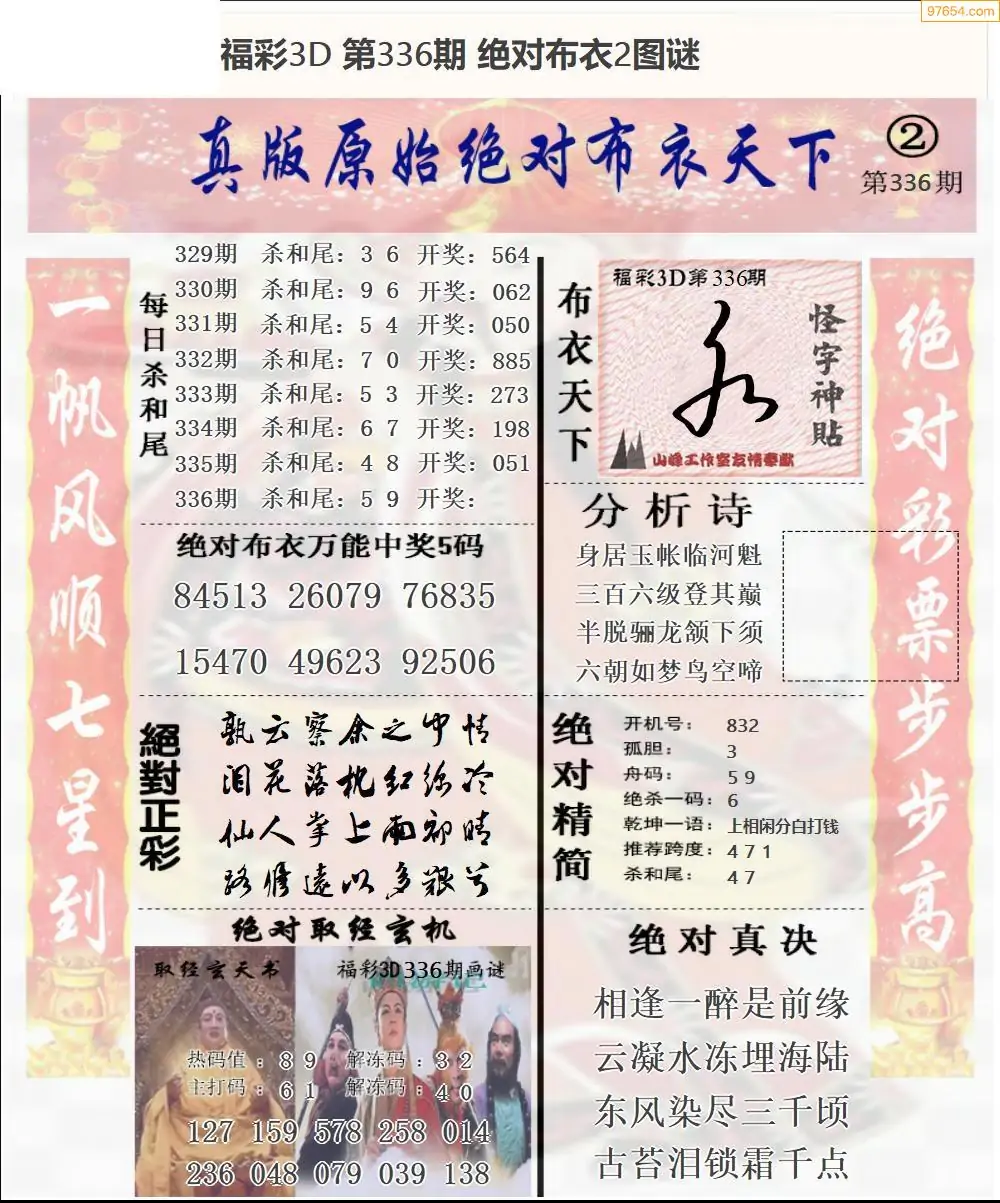 97654.com
福彩3D 第336期 绝对布衣2图谜
真版原始绝对布衣天下
②
第336期
一帆风顺七星到
每日杀和尾
329期 杀和尾：3 6 开奖：564
330期 杀和尾：9 6 开奖：062
331期 杀和尾：5 4 开奖：050
332期 杀和尾：7 0 开奖：885
333期 杀和尾：5 3 开奖：273
334期 杀和尾：6 7 开奖：198
335期 杀和尾：4 8 开奖：051
336期 杀和尾：5 9 开奖：
绝对布衣万能中奖5码
84513 26079 76835
15470 49623 92506
絕對正彩
孰云察余之中情
泪花落枕红绵冷
仙人掌上雨初晴
路修遠以多艰兮
绝对取经玄机
取经玄天书
福彩3D336期画谜
热码值：8 9 解冻码：3 2
主打码：6 1 解冻码：4 0
127 159 578 258 014
236 048 079 039 138
布衣天下
福彩3D第336期
怪字神貼
山峰工作室友情奉献
分析诗
身居玉帐临河魁
三百六级登其巅
半脱骊龙颔下须
六朝如梦鸟空啼
绝对精简
开机号： 832
孤胆： 3
舟码： 5 9
绝杀一码：6
乾坤一语：上相闲分白打钱
推荐跨度：4 7 1
杀和尾： 4 7
绝对真决
相逢一醉是前缘
云凝水冻埋海陆
东风染尽三千顷
古苔泪锁霜千点
绝对彩票步步高